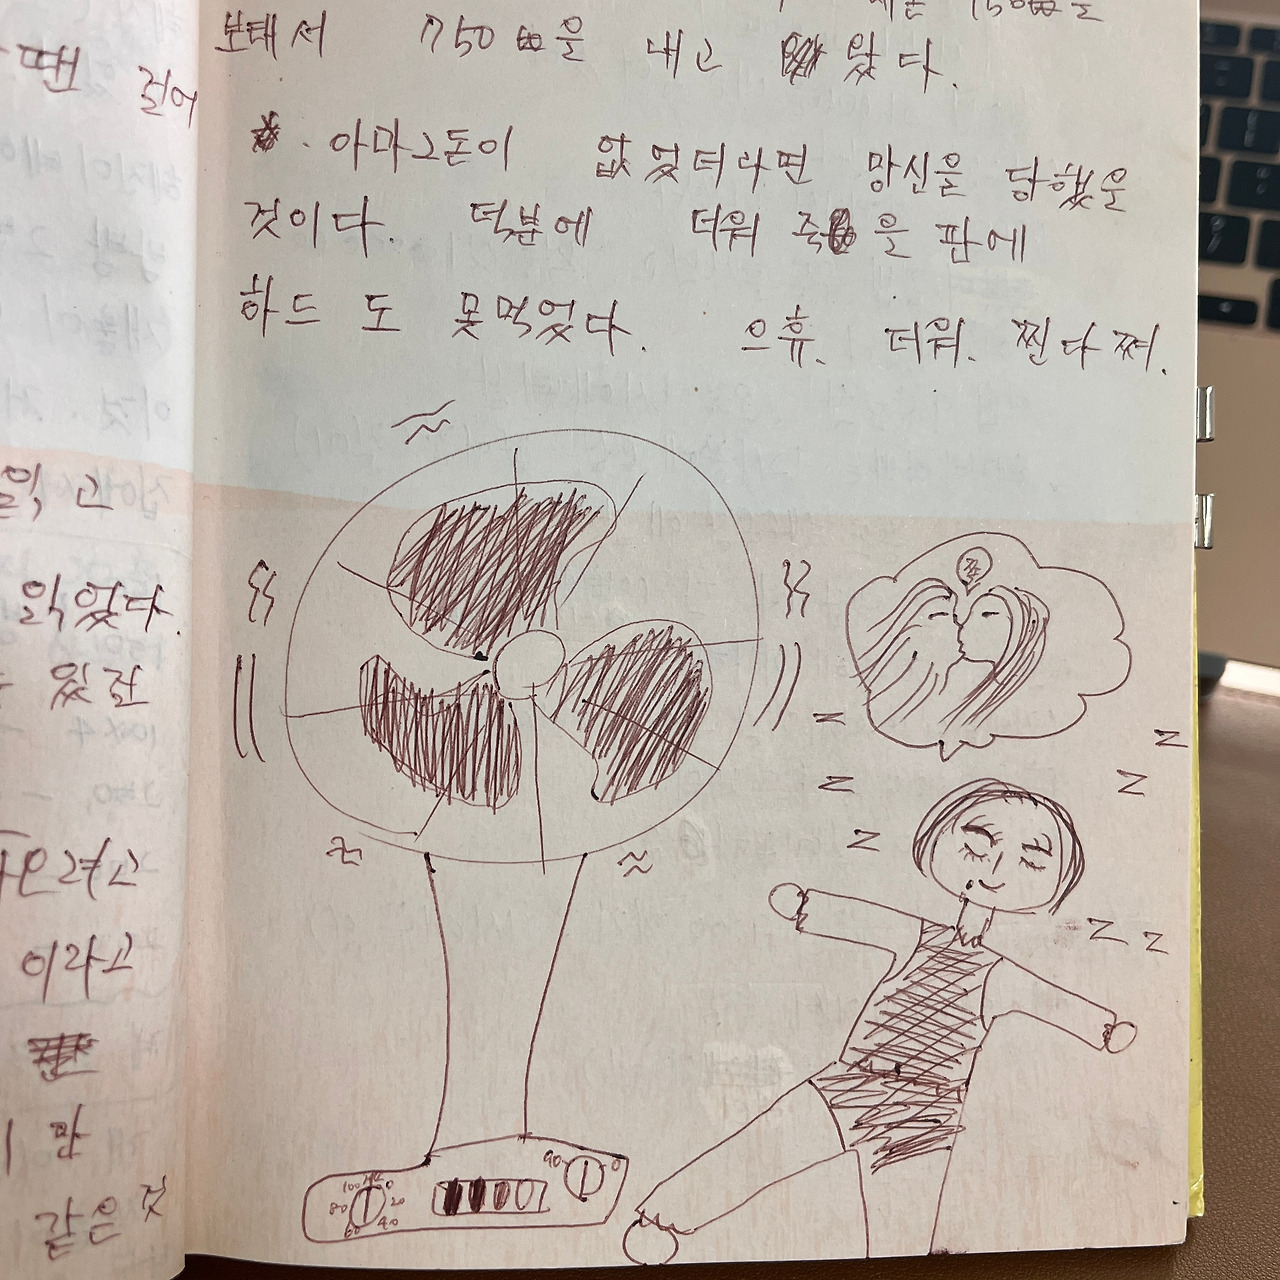 땐 걸어
읽고
읽었다.
있잖
이라고
만
같은 것
보태서 750원을 내고 왔다.
아마 그돈이 없었더라면 망신을 당했을
것이다. 덕분에 더워 죽을 판에
하드 도 못먹었다. 으휴. 더워. 찐다쪄.
쪽
z
z
z
z
z
z z
100 0
80 20
60 40
90 0